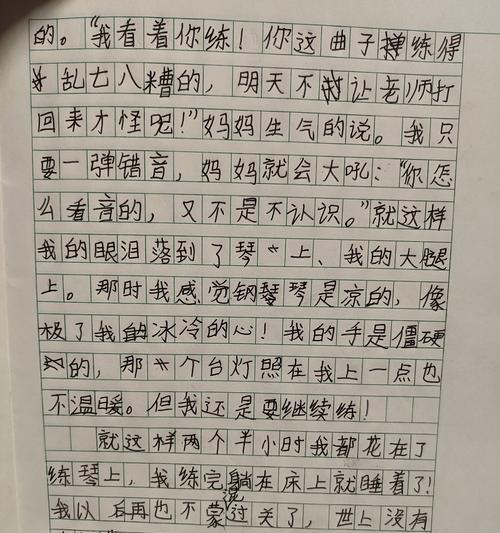 的。“我看着你练！你这曲子弹练得
乱七八糟的，明天不被让老师打
回来才怪呢！”妈妈生气的说。我只
要一弹错音，妈妈就会大吼：“你怎
么看音的，又不是不认识。”就这样
我的眼泪落到了琴上、我的大腿
上。那时我感觉钢琴琴是凉的，像
极了我的冰冷的心！我的手是僵硬
的，那个台灯照在我上一点也
不温暖。但我还是要继续练！
就这样两个半小时我都花在了
练琴上，我练完躺在床上就睡着了！
我以后再也不蒙混过关了，世上没有